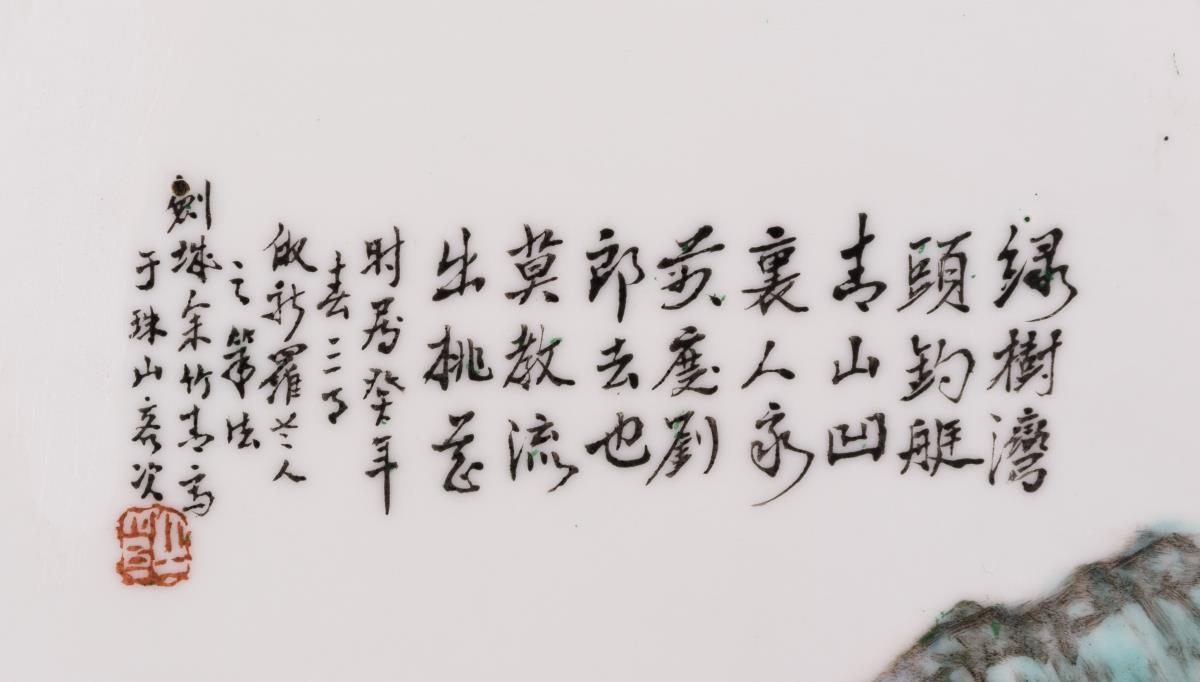 綠樹灣
頭釣艇
青山凹
裏人家
前度劉
郎去也
莫教流
出桃花
时屬癸年
春三月
倣新羅山人
之筆法
劍城余竹青寫
于珠山客次